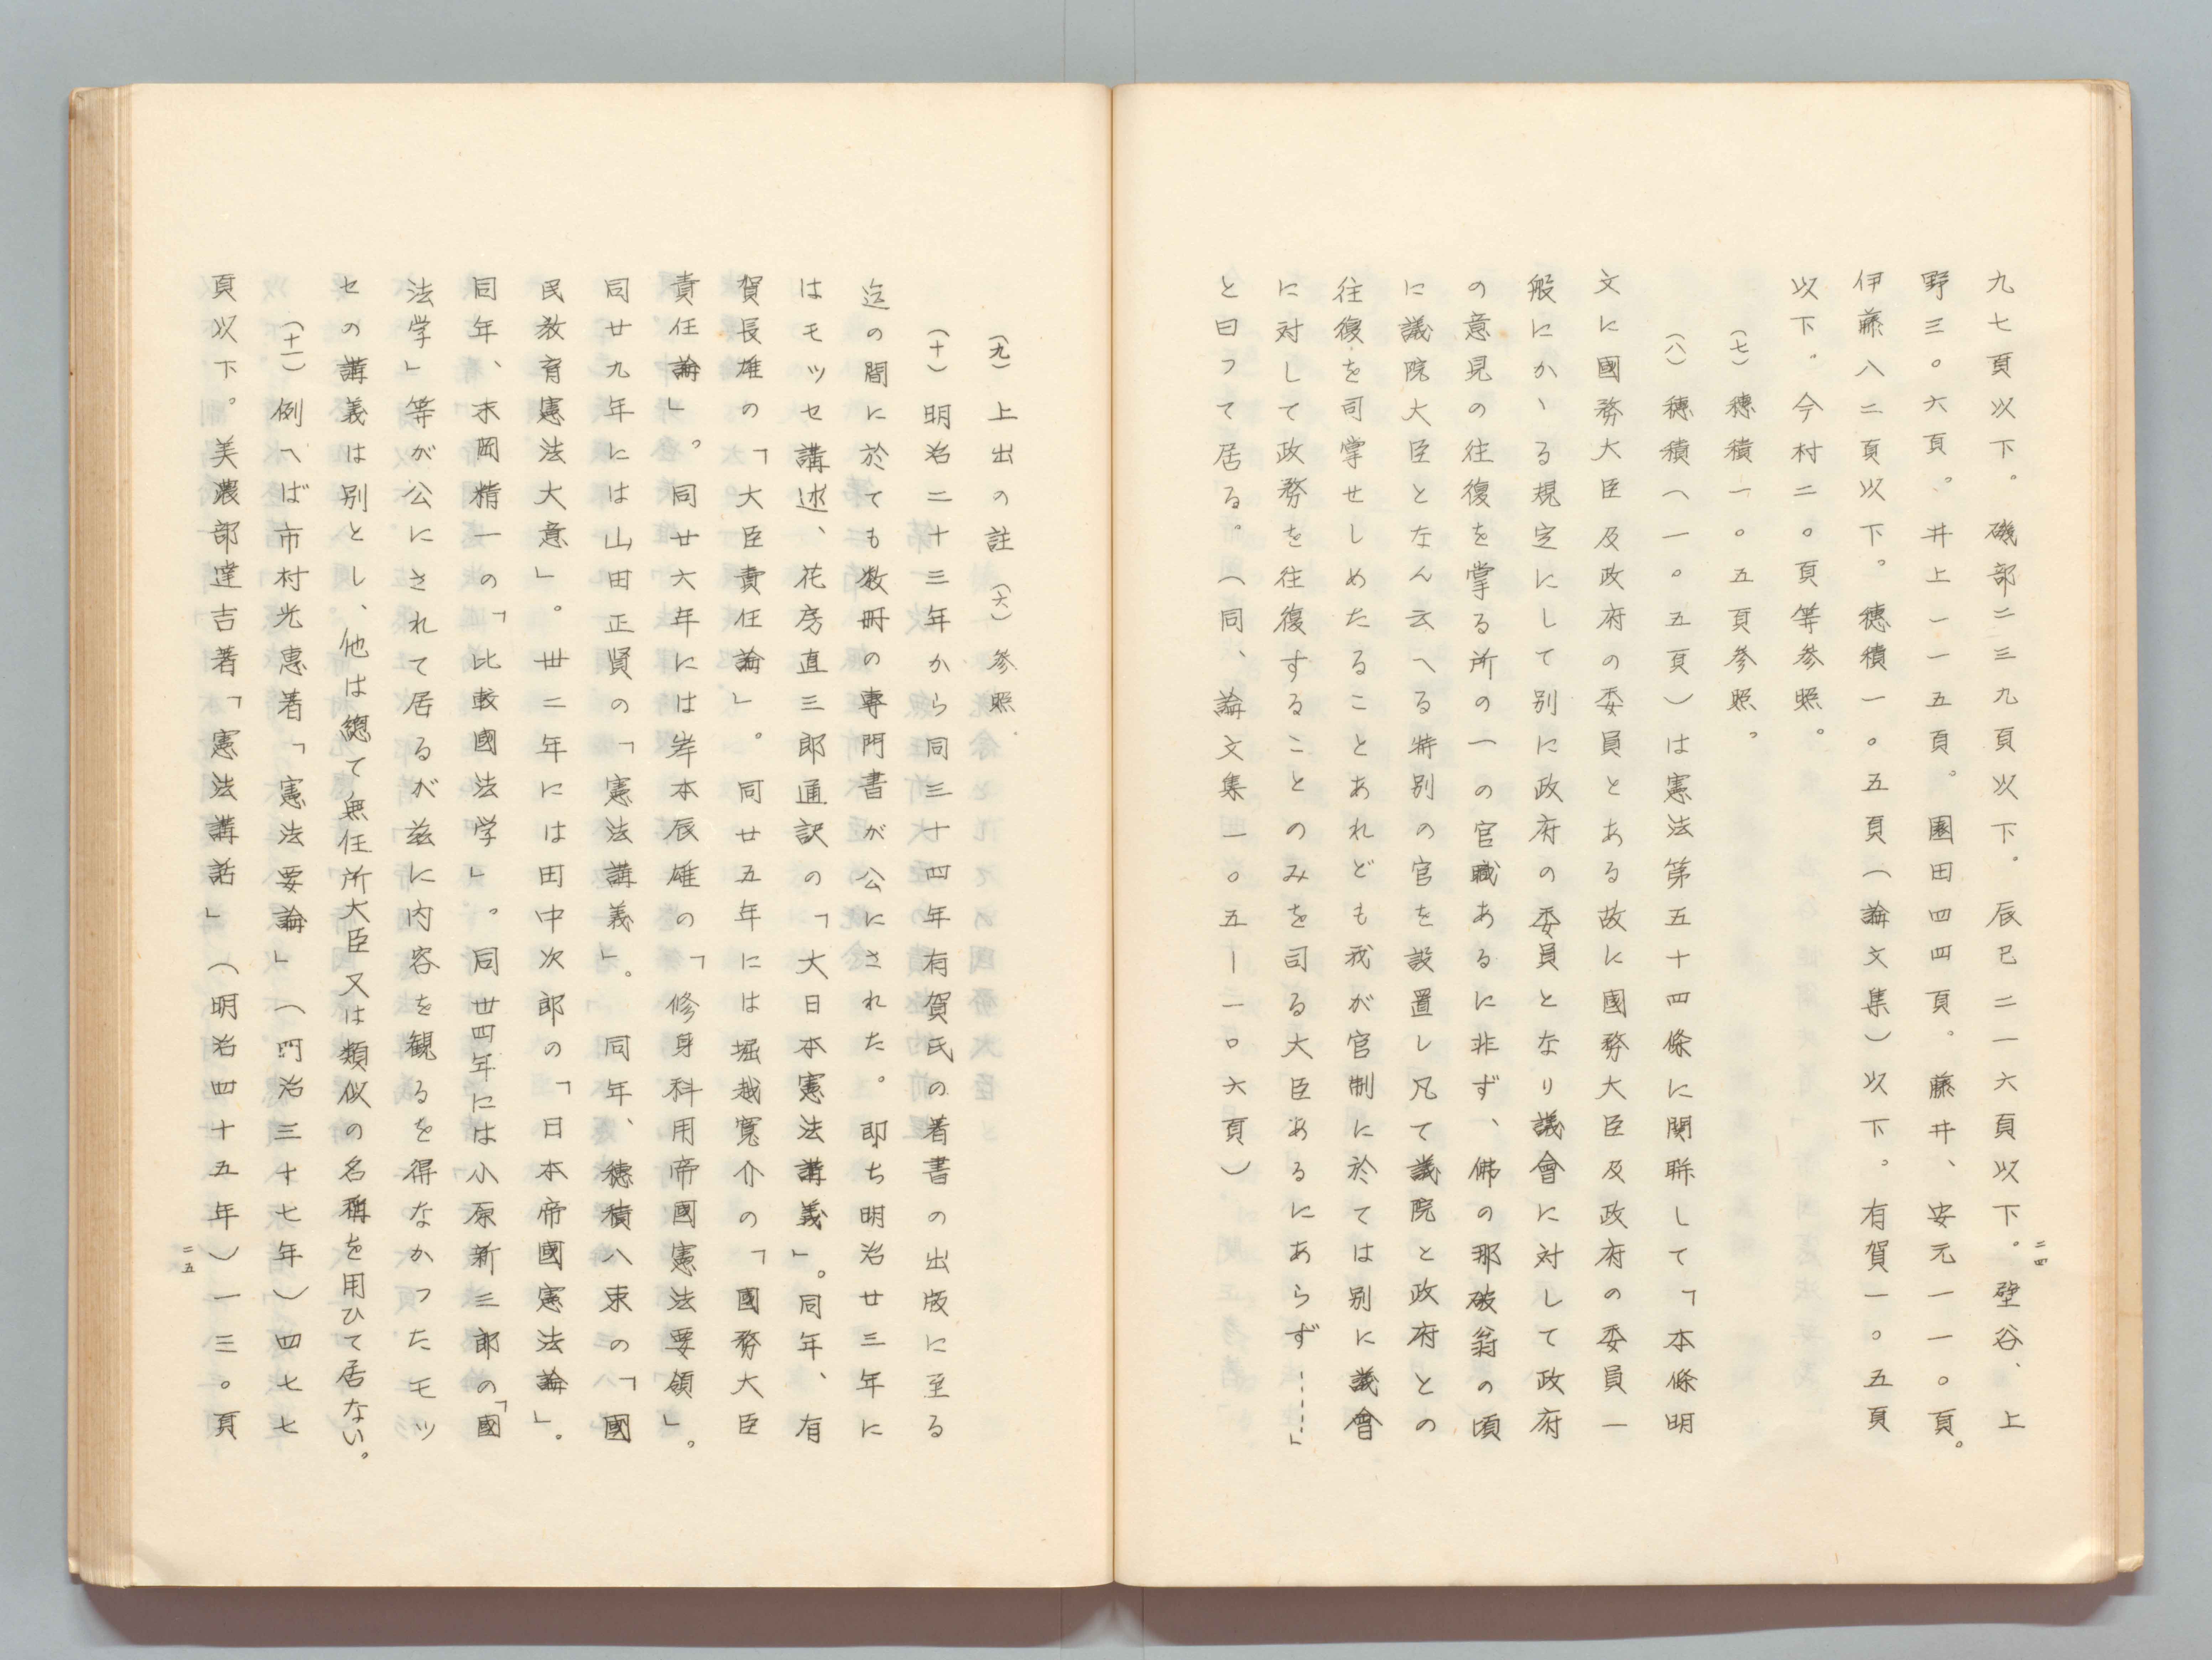 九七頁以下。磯部二三九頁以下。辰巳二一六頁以下。壁谷、上
野三〇六頁。井上一一五頁。園田四四頁。藤井、安元一一〇頁。
伊藤八二頁以下。穂積一〇五頁(論文集)以下。有賀一〇五頁
以下。今村二〇頁等参照。
(七)穂積一〇五頁参照。
(八)穂積(一〇五頁)は憲法第五十四條に関聯して「本條明
文に國務大臣及政府の委員とある故に國務大臣及政府の委員一
般にかゝる規定にして別に政府の委員となり議會に対して政府
の意見の往復を掌る所の一の官職あるに非ず、佛の那破翁の頃
に議院大臣となん云へる特別の官を設置し凡て議院と政府との
往復を司掌せしめたることあれども我が官制に於ては別に議會
に対して政務を往復することのみを司る大臣あるにあらず……」
と曰つて居る。(同、論文集一〇五―一〇六頁)
二四
(九)上出の註(六)参照.
(十)明治二十三年から同三十四年有賀氏の著書の出版に至る
迄の間に於ても数冊の専門書が公にされた。即ち明治廿三年に
はモッセ講述、花房直三郎通訳の「大日本憲法講義」。同年、有
賀長雄の「大臣責任論」。同廿五年には堀越寛介の「國務大臣
責任論」。同廿六年には岸本辰雄の「修身科用帝國憲法要領」。
同廿九年には山田正賢の「憲法講義」。同年、穂積八束の「國
民教育憲法大意」。卅二年には田中次郎の「日本帝國憲法論」。
同年、末岡精一の「比較國法学」。同卅四年には小原新三郎の「國
法学」等が公にされて居るが茲に内容を観るを得なかつたモッ
セの講義は別とし、他は總て無任所大臣又は類似の名稱を用ひて居ない。
(十一)例へば市村光恵著「憲法要論」(明治三十七年)四七七
頁以下。美濃部達吉著「憲法講話」(明治四十五年)一三〇頁
二五